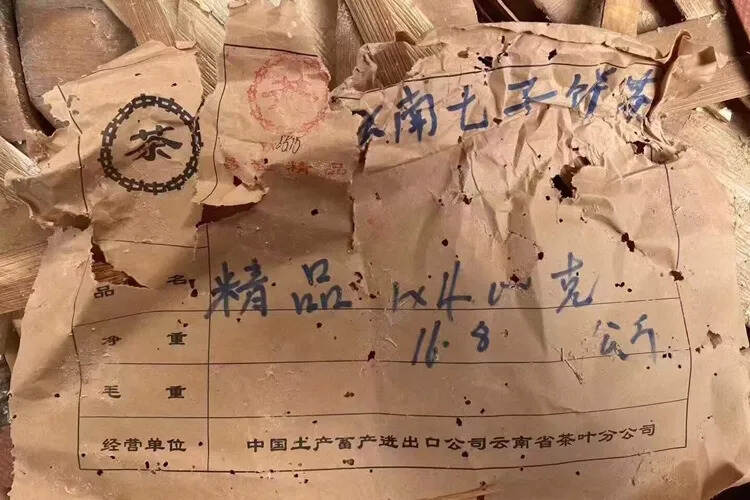 茶
茶
8515
精品
云南七子饼茶
品名 精品 1×400克
净重 16.8 公斤
毛重
经营单位 中国土产畜产进出口公司云南省茶叶分公司